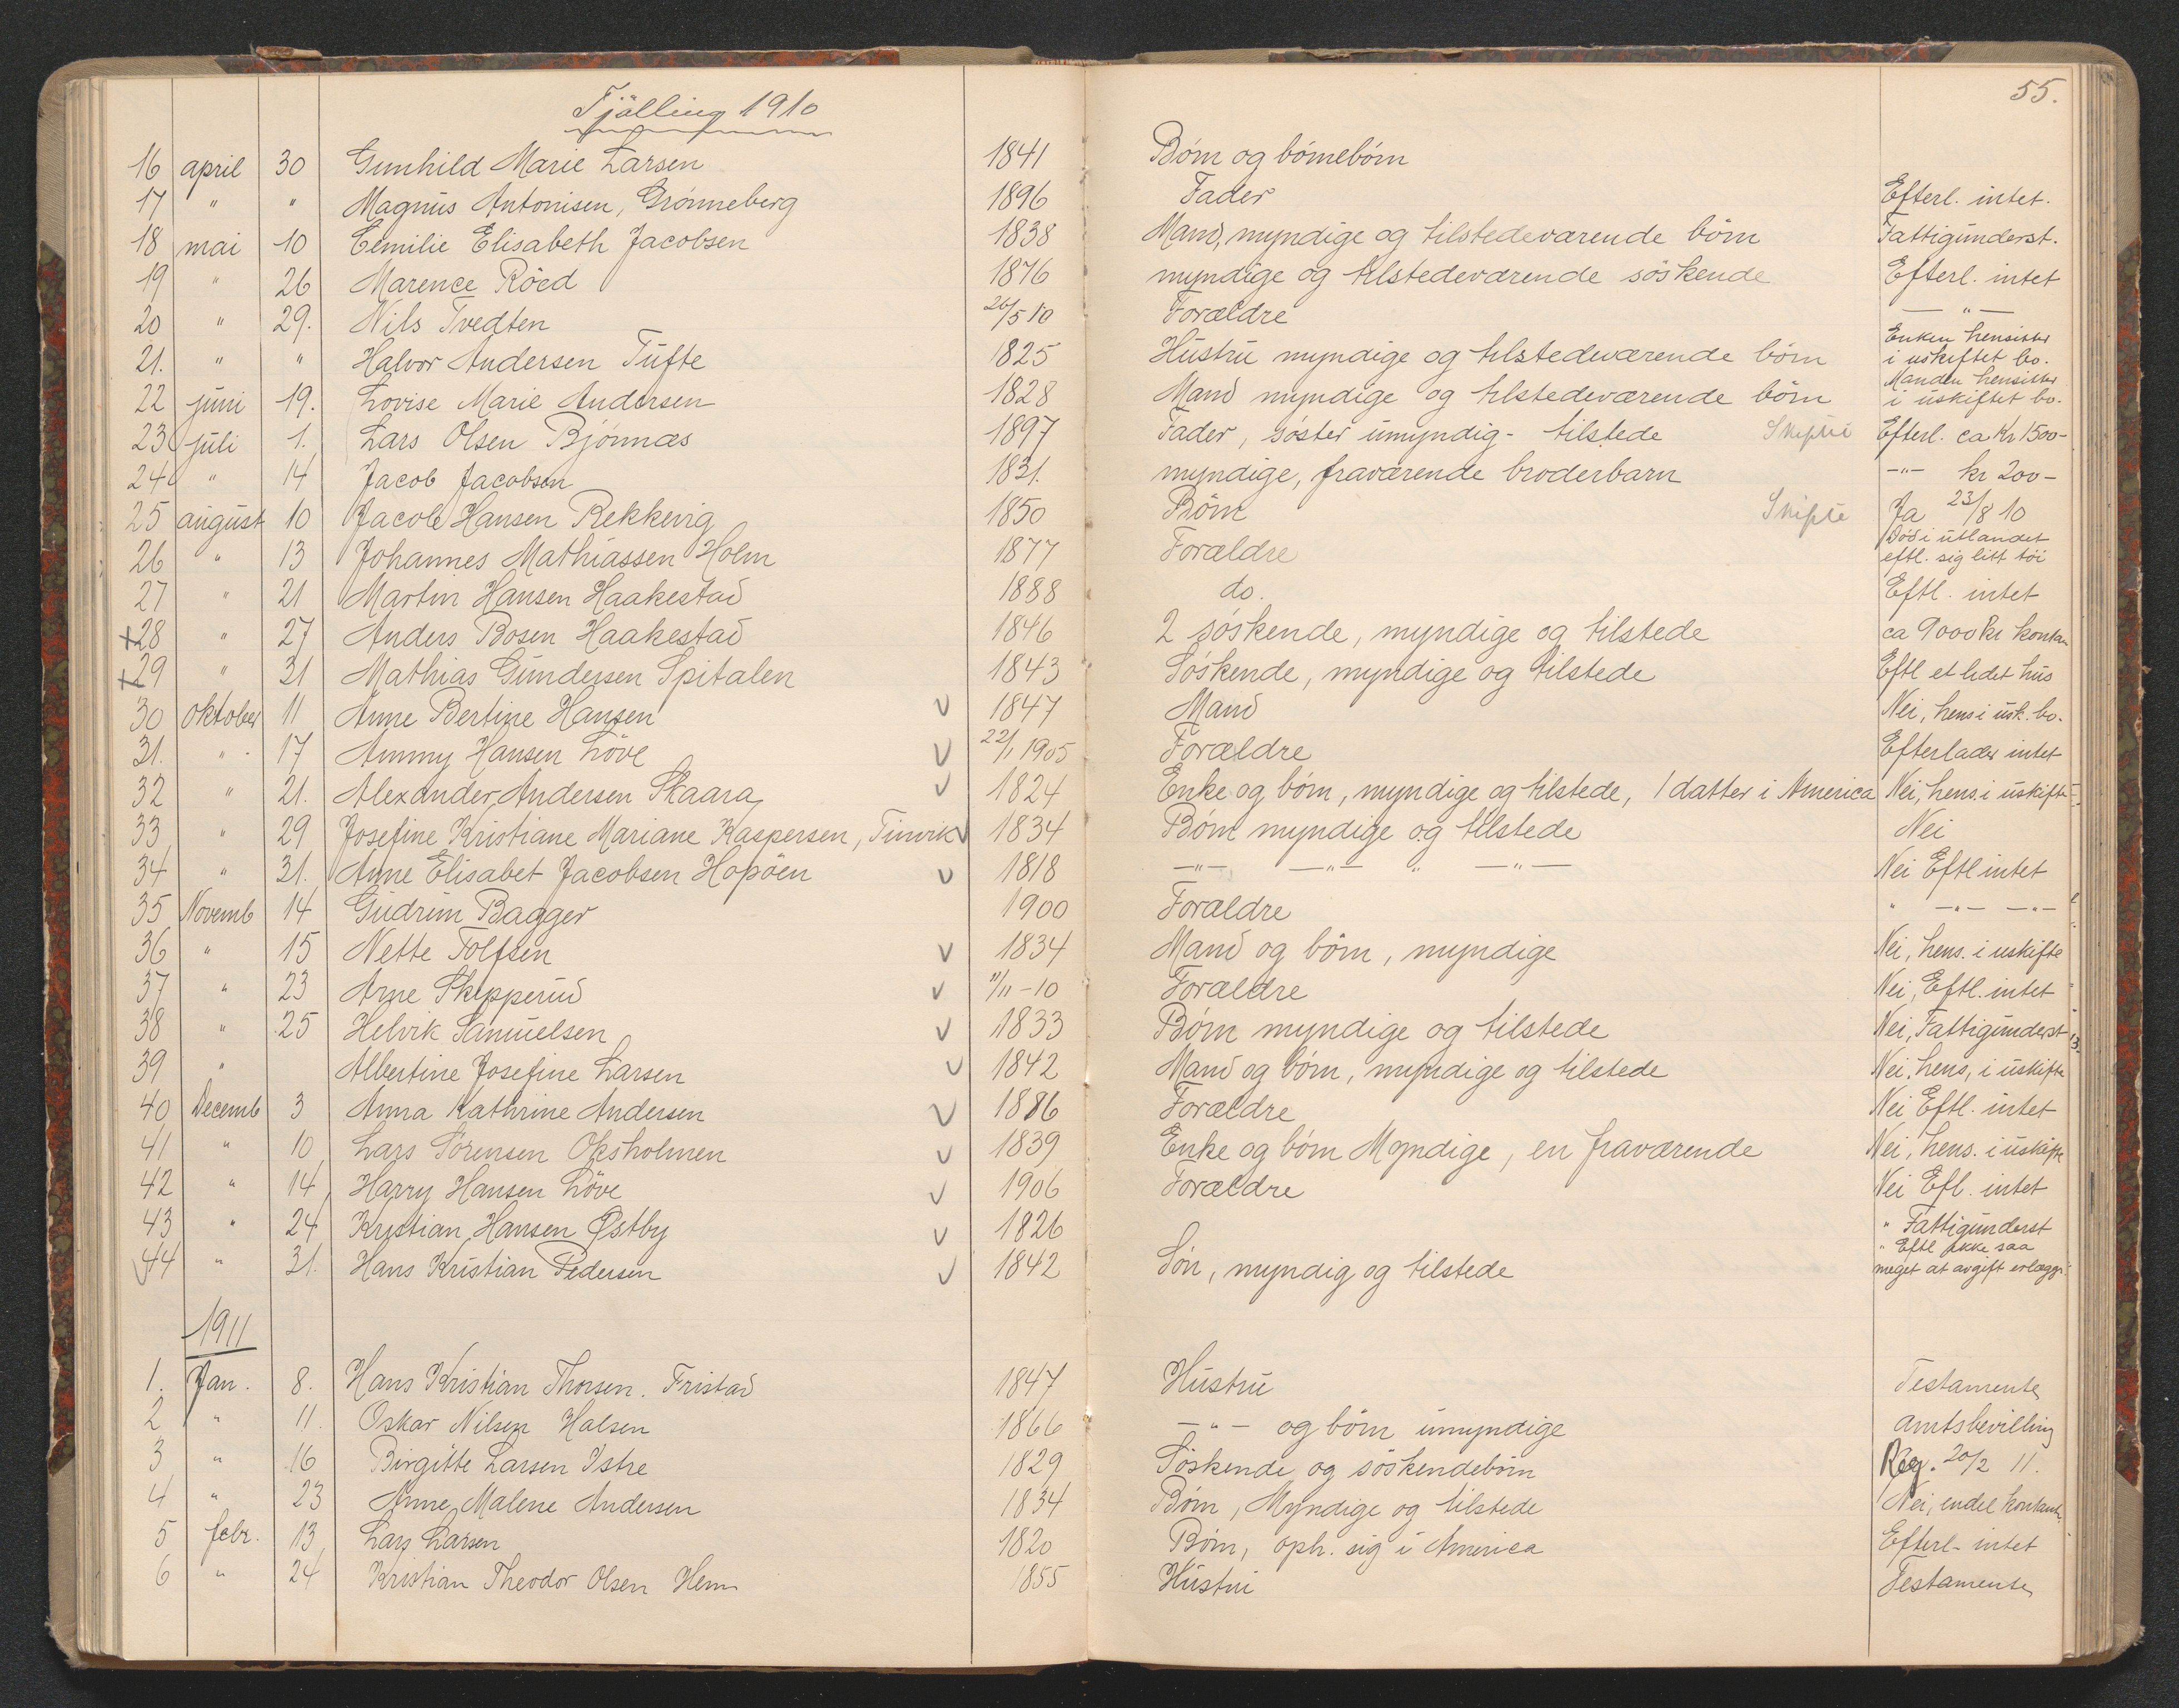 55.
Tjølling 1910
16 april 30 Gunhild Marie Larsen 1841 Børn og børnebørn
17 " " Magnus Antonisen, Grønneberg 1896 Fader Efterl. intet.
18 mai 10 Cemilie Elisabeth Jacobsen 1838 Mand, myndige og tilstedeværende børn Fattigunderst.
19 " 26 Marence Röed 1876 myndige og tilstedeværende söskende Efterl. intet
20 " 29. Nils Tvedten 26/5 10 Forældre — " —
21. " " Halvor Andersen Tufte 1825 Hustru myndige og tilstedeværende börn Enken hensitter i uskiftet bo.
22 juni 19. Lovise Marie Andersen 1828 Mand myndige og tilstedeværende börn Manden hensitter i uskiftet bo.
23 juli 1. Lars Olsen Bjønnæs 1897 Fader, søster umyndig - tilstede Skifte Efterl. ca Kr 1500-
24 " 14 Jacob Jacobsen 1831. myndige, fraværende broderbarn -"- kr 200-
25 august 10 Jacob Hansen Rekkevig 1850 Börn Skifte Ja 23/8 10
26 " 13 Johannes Mathiassen Holm 1877 Forældre Död i utlandet eftl. sig litt töi
27 " 21 Martin Hansen Haakestad 1888 do. Eftl. intet
+28 " 27 Anders Bosen Haakestad 1846 2 søskende, myndige og tilstede ca 9000 kr kontan
+29 " 31 Mathias Gundersen Spitalen 1843 Søskende, myndige og tilstede Eftl et lidet hus
30 oktober 11 Anne Bertine Hansen v 1847 Mand Nei, hens i usk. bo.
31. " 17 Ammy Hansen Löve v 22/1 1905 Forældre Efterlader intet
32 " 21. Alexander Andersen Skaara v 1824 Enke og børn, myndige og tilstede, 1 datter i America Nei, hens. i uskifte
33 " 29 Josefine Kristiane Mariane Kaspersen, Tinvik v 1834 Børn myndige og tilstede Nei
34 " 31. Anne Elisabet Jacobsen Hopöen v 1818 —"— —"— " —"— Nei Eftl intet
35 Novemb 14 Gudrun Bagger 1900 Forældre " —"— —"—
36 " 15 Nette Tolfsen v 1834 Mand og börn, myndige Nei, hens. i uskifte
37 " 23 Arne Skipperud v 11/11-10 Forældre Nei, Eftl. intet
38 " 25 Helvik Samuelsen v 1833 Børn myndige og tilstede Nei, Fattigunderst
39 " Albertine Josefine Larsen v 1842 Mand og börn, myndige og tilstede Nei, hens, i uskifte
40 Decemb 3 Anna Kathrine Andersen v 1886 Forældre Nei Eftl. intet
41 " 10 Lars Sörensen Oksholmen v 1839 Enke og børn Myndige, en fraværende Nei, hens. i uskifte
42 " 14 Harry Hansen Löve v 1906 Forældre Nei Efl. intet
43 " 24 Kristian Hansen Østby v 1826 " Fattigunderst
44 " 31. Hans Kristian Pedersen v 1842 Sön, myndig og tilstede " Eftl ikke saa meget at avgift erlægg.
1911
1. Jan. 8. Hans Kristian Thorsen. Fristad 1847 Hustru Testamente
2 " 11. Oskar Nilsen Halsen 1866 —"— og börn umyndige Amtsbevilling
3 " 16 Birgitte Larsen Istre 1829 Söskende og söskendebörn Reg. 20/2 11.
4 " 23 Anne Malene Andersen 1834 Børn, Myndige og tilstede Nei, endel kontant.
5 febr. 13 Lars Larsen 1820 Börn, oph. sig i America Efterl- intet
6 " 24 Kristian Theodor Olsen Hem 1855 Hustru Testamente